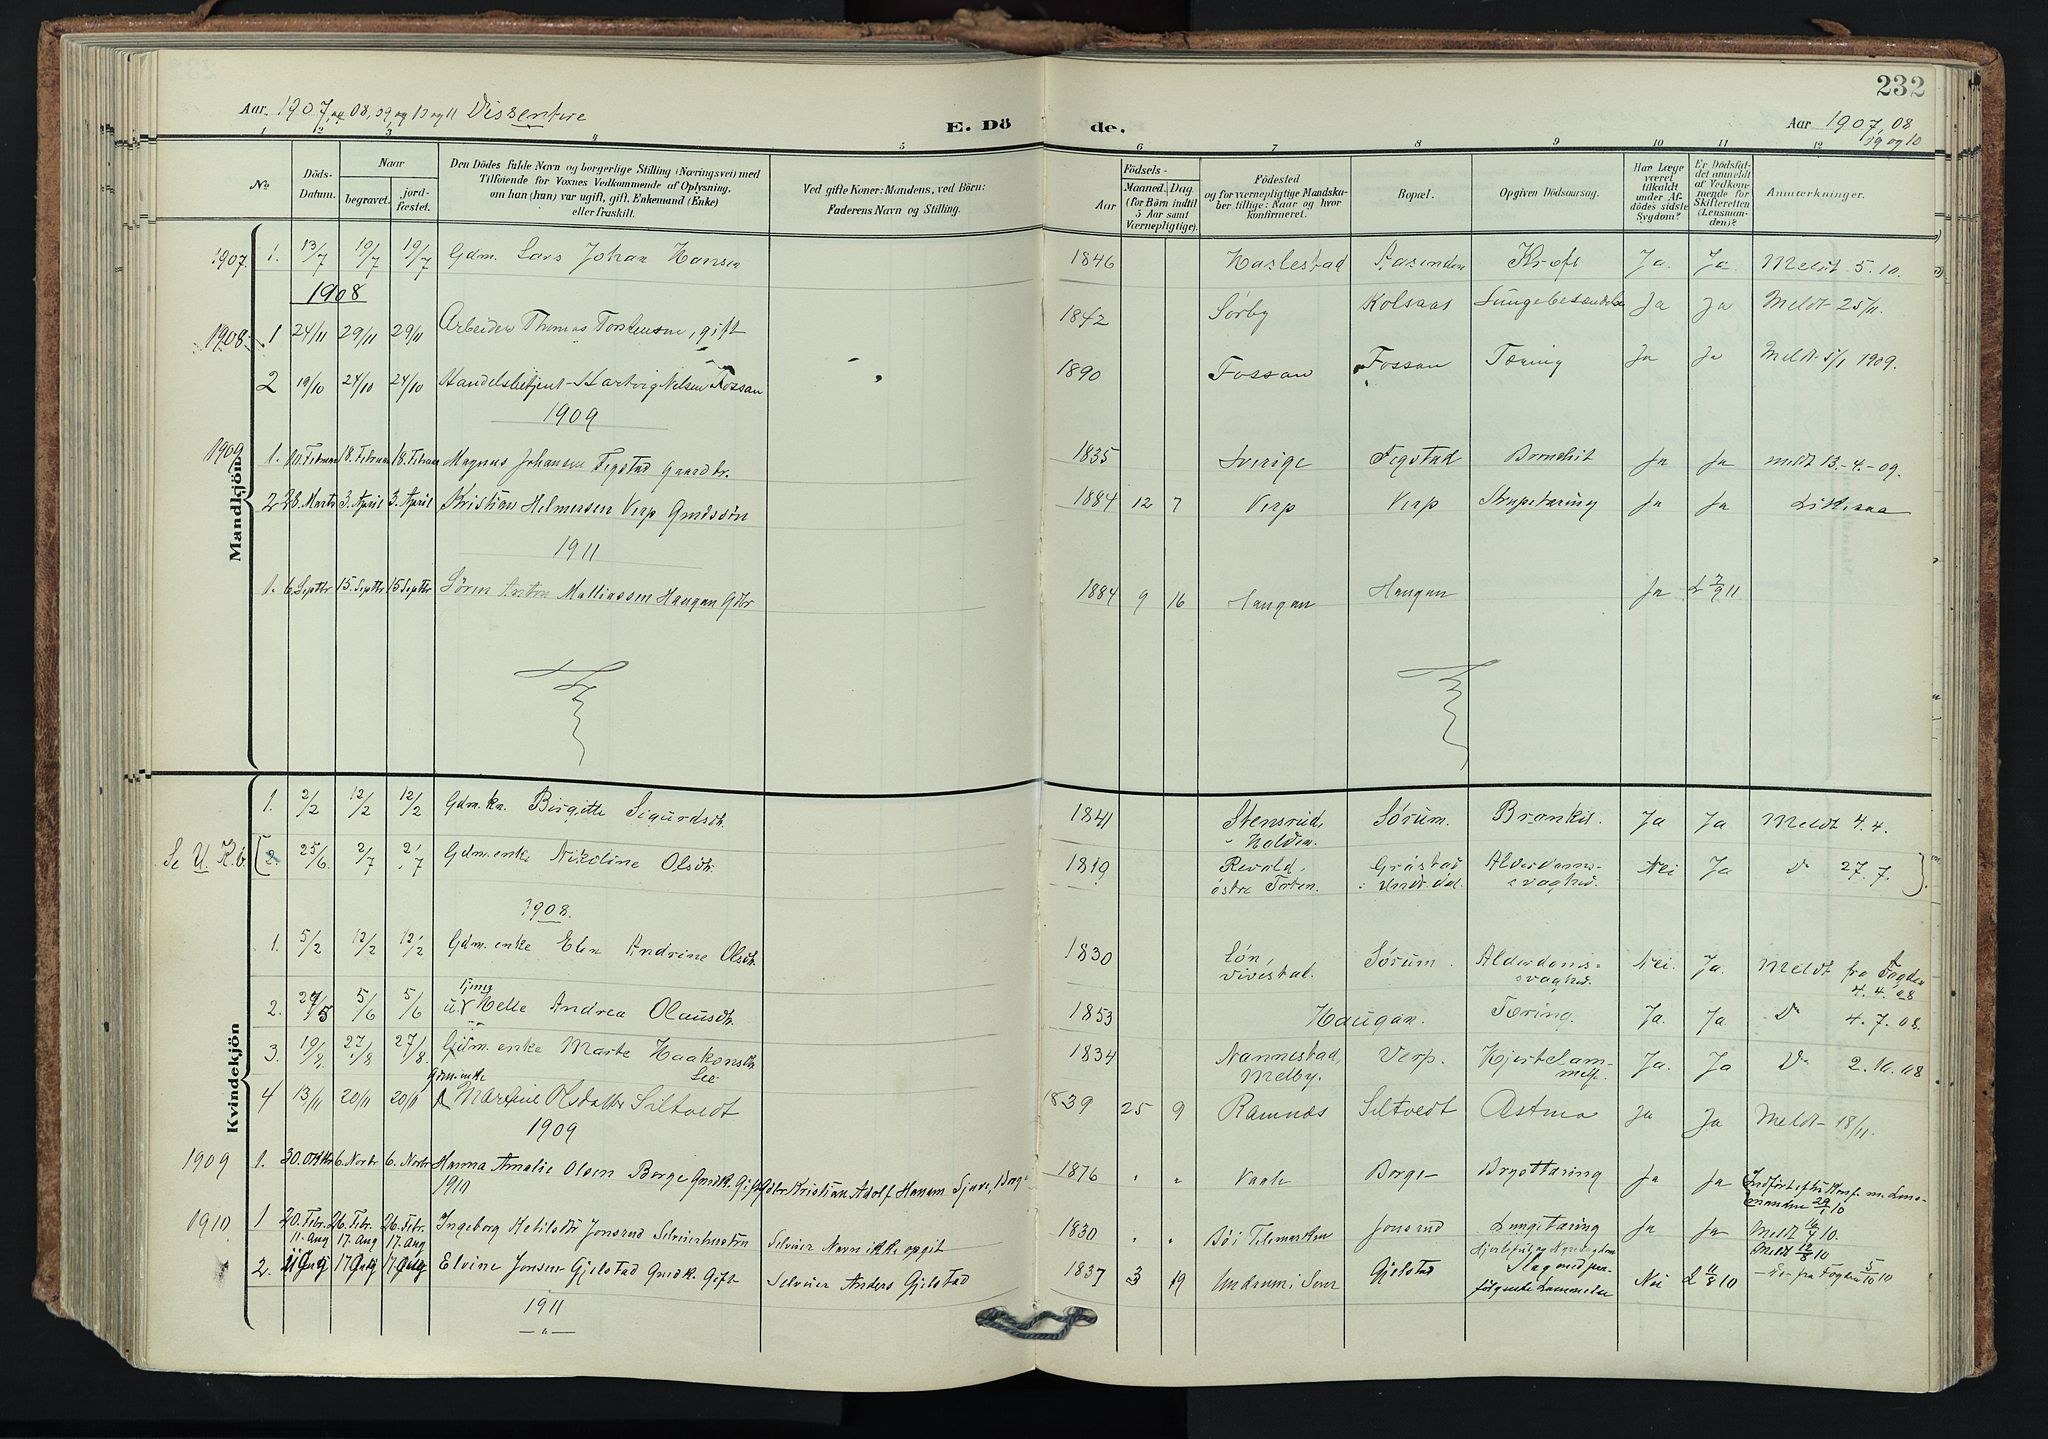 232
Aar 1907, og 08, 09 og 10 og 11 Dissentere
E. Dö
de.
Aar 1907, 08
09 og 10
1 2 3 4 5 6 7 8 9 10 11 12
No.
Döds-
Datum.
Naar
begravet.
jord-
fæstet.
Den Dödes fulde Navn og borgerlige Stilling (Næringsvei) med
Tilföiende for Voxnes Vedkommende af Oplysning,
om han (hun) var ugift, gift, Enkemand (Enke)
eller fraskilt.
Ved gifte Koner: Mandens, ved Börn:
Faderens Navn og Stilling.
Aar
Födsels-
Maaned. Dag.
(for Börn indtil
5 Aar samt
Værnepligtige).
Födested
og for værnepligtige Mandska-
ber tillige: Naar og hvor
konfirmeret.
Bopæl.
Opgiven Dödsaarsag.
Har Læge
været
tilkaldt
under Af-
dödes sidste
Sygdom?
Er Dödsfal-
det anmeldt
af Vedkom-
mende for
Skifteretten
(Lensman-
den)?
Anmærkninger.
Mandkjön
1907. 1. 13/7 19/7 19/7 Gdm. Lars Johan Hansen 1846 Haslestad Aasenden Kræft Ja. Ja. Meldt 5.10.
1908
1908. 1 24/11 29/11 29/11 Arbeider Thomas Torstensen, gift 1842 Sörby Kolsaas Lungebetændelse Ja Ja Meldt 25/11.
2 19/10 24/10 24/10 Handelsbetjent Hartvig Nilsen Fossan 1890 Fossan Fossan Tæring Ja Ja Meldt 5/1 1909.
1909
1909 1. 18. Februar 18. Februar Magnus Johansen Fegstad Gaardbr. 1835 Sverige Fegstad Bronchit Ja Ja meldt 13.-4.-09.
2 28. Marts 3. April 3. April Kristian Helmersen Verp Gmdssön 1884 12 7 Verp Verp Strupetæring Ja Ja
1911
1. 6. Septbr 15. Septbr 15 Septbr Sören Anton Mathiassen Haugan Gbr 1884 9 16 Haugan Haugan Ja L 7/9 11
Kvindekjön
1. 2/2 12/2 12/2 Gdm.kn. Birgitte Sigurdsdtr. 1841 Stensrud, Holden. Sörum. Bronkit. Ja Ja Meldt 4.4.
Se U. K.b. 2. 25/6 2/7 2/7 Gdm.enke Nikoline Olsdtr. 1819 Revold, östre Toten. Gråstad i Undrdal. Alderdoms-svaghed. Nei Ja Do 27.7.
1908.
1. 5/2 12/2 12/2 Gdm.enke Elen Andrine Olsdtr. 1830 Lön, Vivestad. Sörum. Alderdoms-svaghed. Nei. Ja. Meldt fra Fogden 4.4.08
2. 27/5 5/6 5/6 Pige Helle Andrea Olausdtr. 1853 Haugan. Tæring. Ja. Ja. Do 4.7.08.
3. 19/8. 27/8 27/8 Gdm.enke Marte Haakonsdtr. 1834 Nannestad, Melby. Verp. Hjertelammelse. Ja. Ja Do 2.10.08
4 13/11 20/11 20/11 Gdm.enke Maren Olsdatter Siltvedt 1839 25 9 Ramnæs Siltvedt Astma Ja Ja Meldt 18/11.
1909
1909 1. 30. Oktbr 6. Novbr 6. Novbr Hanna Amalie Olsen Borge Gmdk. Gift Gdbr Kristian Adolf Hansen 1876 " " Vaale Borge Brysttæring Ja Ja Indfört efter Konf. m. Lensmanden 29/1 10
1910
1910. 1 20. Febr. 26. Febr. 26. Febr. Ingeborg Ketilsdtr Jonsrud Selveierhustru Selveier Navn ikke opgit 1830 " " Böi Telemarken Jonsrud Lungetæring Ja Ja Meldt 16/4 10.
11. Aug 17. Aug 17. Aug Meldt 12/8 10
2. 11 Aug 17 Aug 17. Aug Elvine Jensen Gjelstad Gmdk. Gift Selveier Anders Gjelstad 1837 3 19 Undrum i Sem Gjelstad Slag med paafölgende Lammelse Nei L 11/8 10 -do- fra Fogden 5/10 10
1911
— " —